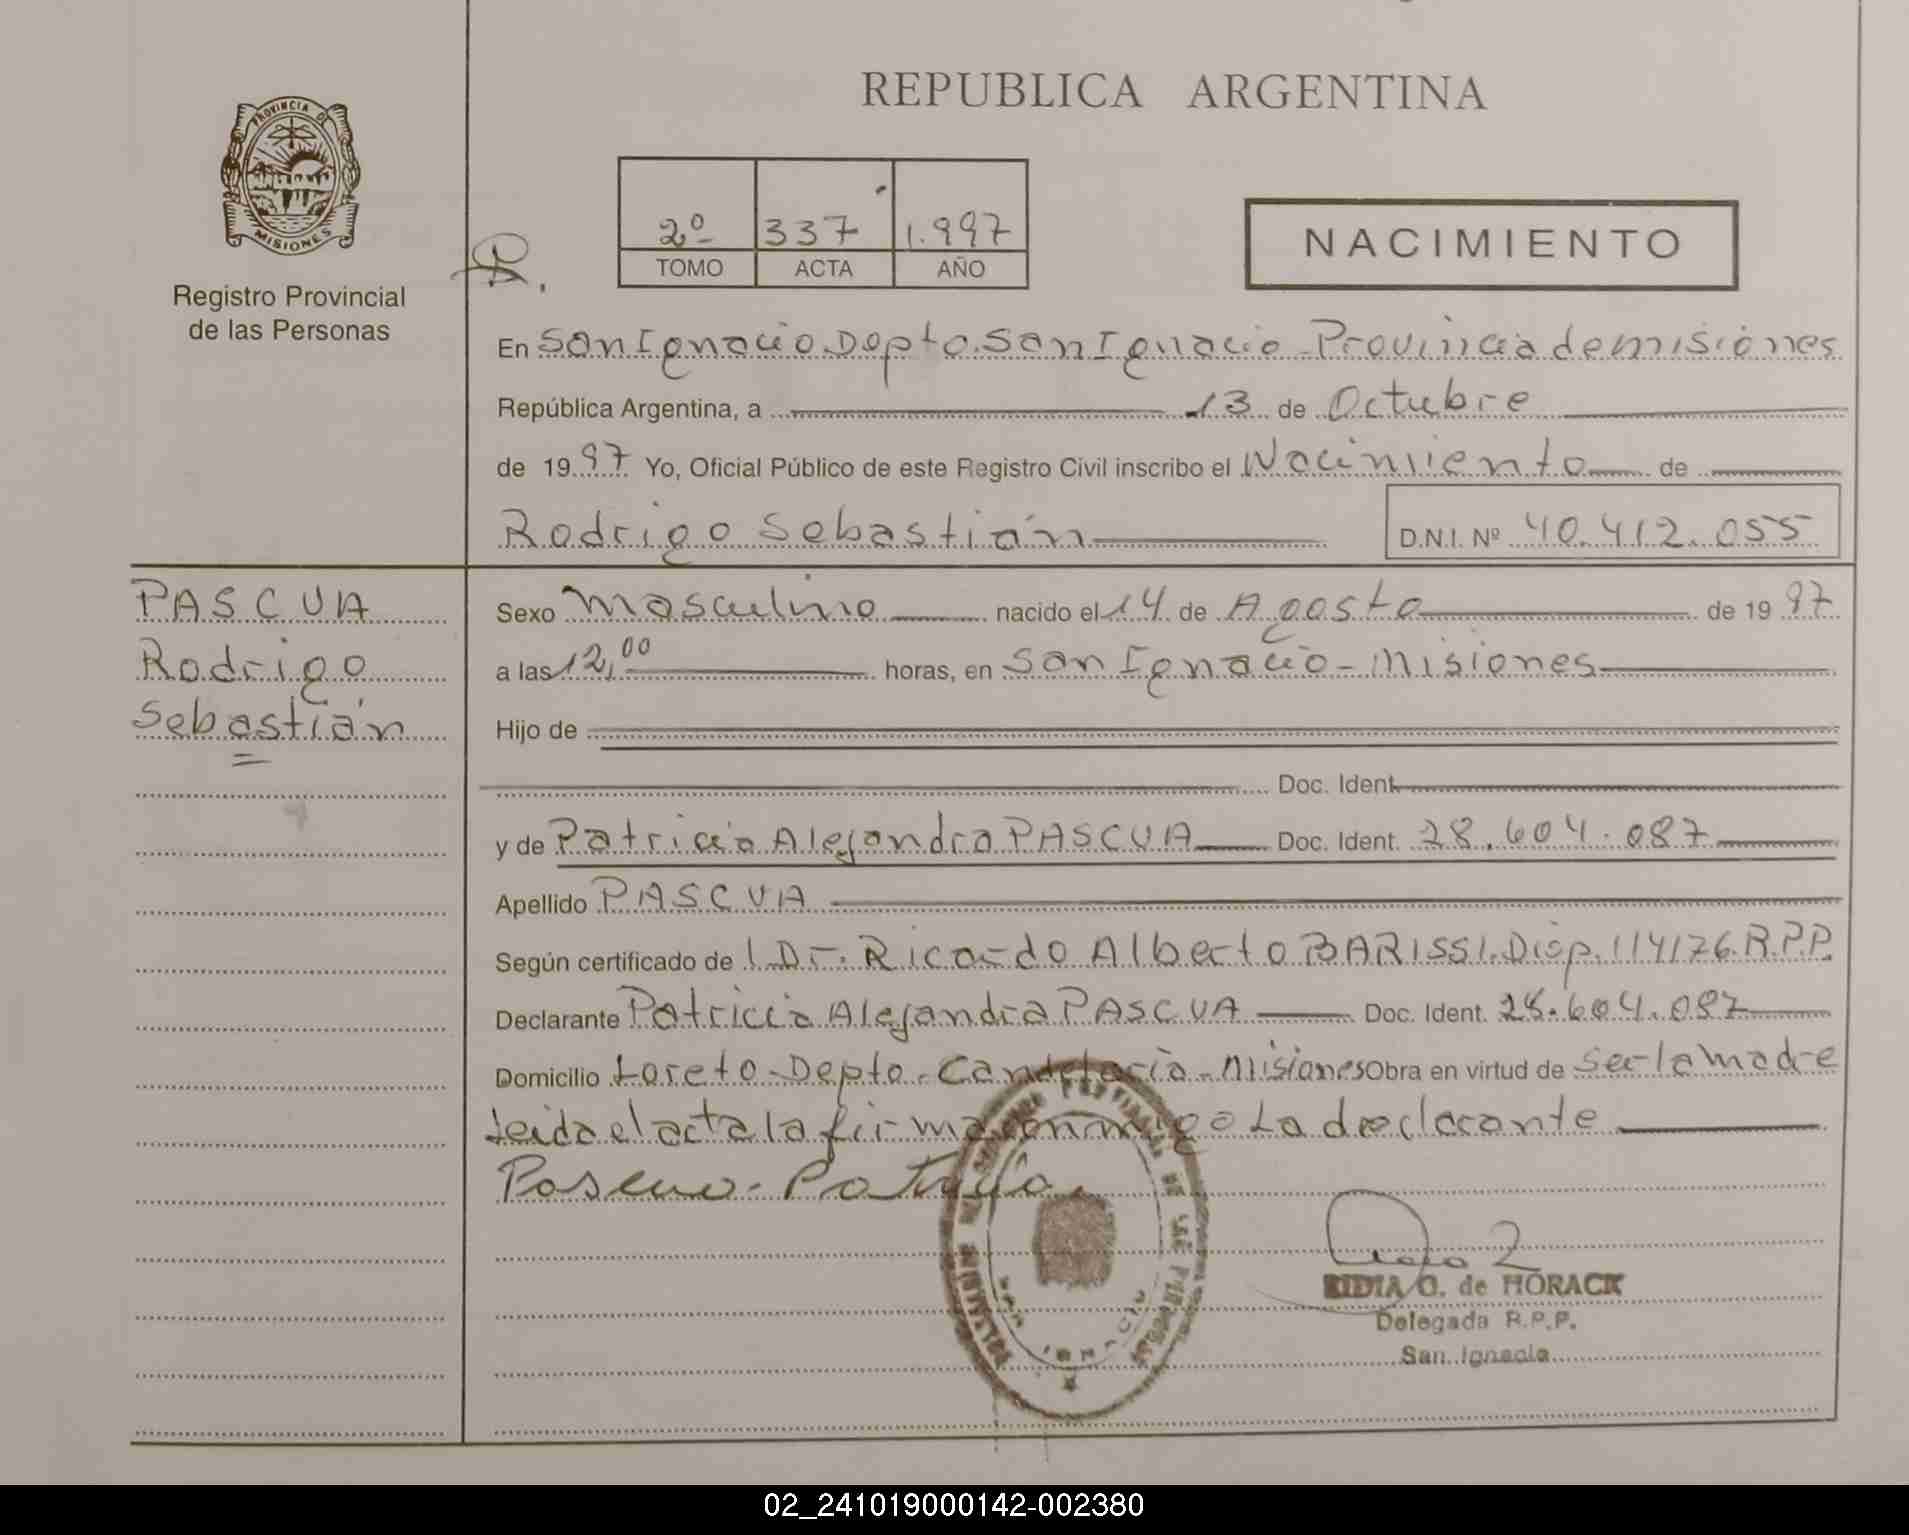 REPUBLICA ARGENTINA
PROVINCIA DE
MISIONES
Registro Provincial
de las Personas
2º 337 1.997
TOMO ACTA AÑO
NACIMIENTO
En San Ignacio.Depto.San Ignacio-Provincia de misiones
República Argentina, a 13 de Octubre
de 1997 Yo, Oficial Público de este Registro Civil inscribo el Nacimiento de
Rodrigo Sebastián D.N.I. Nº 40.412.055
PASCUA
Rodrigo
Sebastián
Sexo masculino nacido el 14 de Agosto de 1997
a las 12,00 horas, en San Ignacio-Misiones
Hijo de
Doc. Ident.
y de Patricia Alejandra PASCUA Doc. Ident. 28.604.087
Apellido PASCUA
Según certificado de l Dr. Ricardo Alberto BARISSI.Disp.114/76.R.P.P.
Declarante Patricia Alejandra PASCUA Doc. Ident. 28.604.087
Domicilio Loreto-Depto.Candelaria-Misiones Obra en virtud de ser la madre
Leida el acta la firma conmigo La declarante
Pascua Patricia
DE LAS PERSONAS
SAN IGNACIO
G. de HORACK
Delegada R.P.P.
San Ignacio
02_241019000142-002380